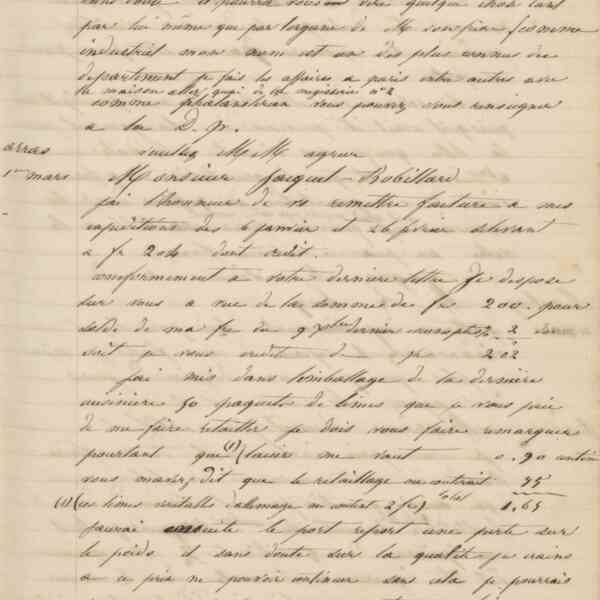 par lui même que par l'organe de M
industriel mon nom est un des plus connus du
departement je fais les affaires a paris entre autres avec
la maison allez, quai de la megisserie n° 2
comme phalanstérien vous pouvez vous renseigner
a la D. p.
M M. agréer
arras
1er mars
Monsieur Jacquet-Robillard
j'ai l'honneur de vs remettre facture a mes
expéditions des 6 janvier et 26 février s'elevant
a fr 204 dont crédit.
conformement a votre derniere lettre je dispose
sur vous a vue de la somme de fr 200. pour
solde de ma fre du 9 xbre dernier 2
soit je vous crédit de fr 202
j'ai mis dans l'emballage de la dernière
cuisinière 50 paquets de limes que je vous prie
de me faire retailler je dois vous faire remarquer
pourtant que (1) l'acier me vaut 0.90
vous m'avez dit que le retaillage me coutrait 75
(1) (ces limes retaillés d'allemagne me coutent 2 fr) total 1.65
j'aurai ensuite le port report une perte sur
le poids et sans doute sur la qualité je crains
a ce prix ne pouvoir continuer sans cela je pourrais